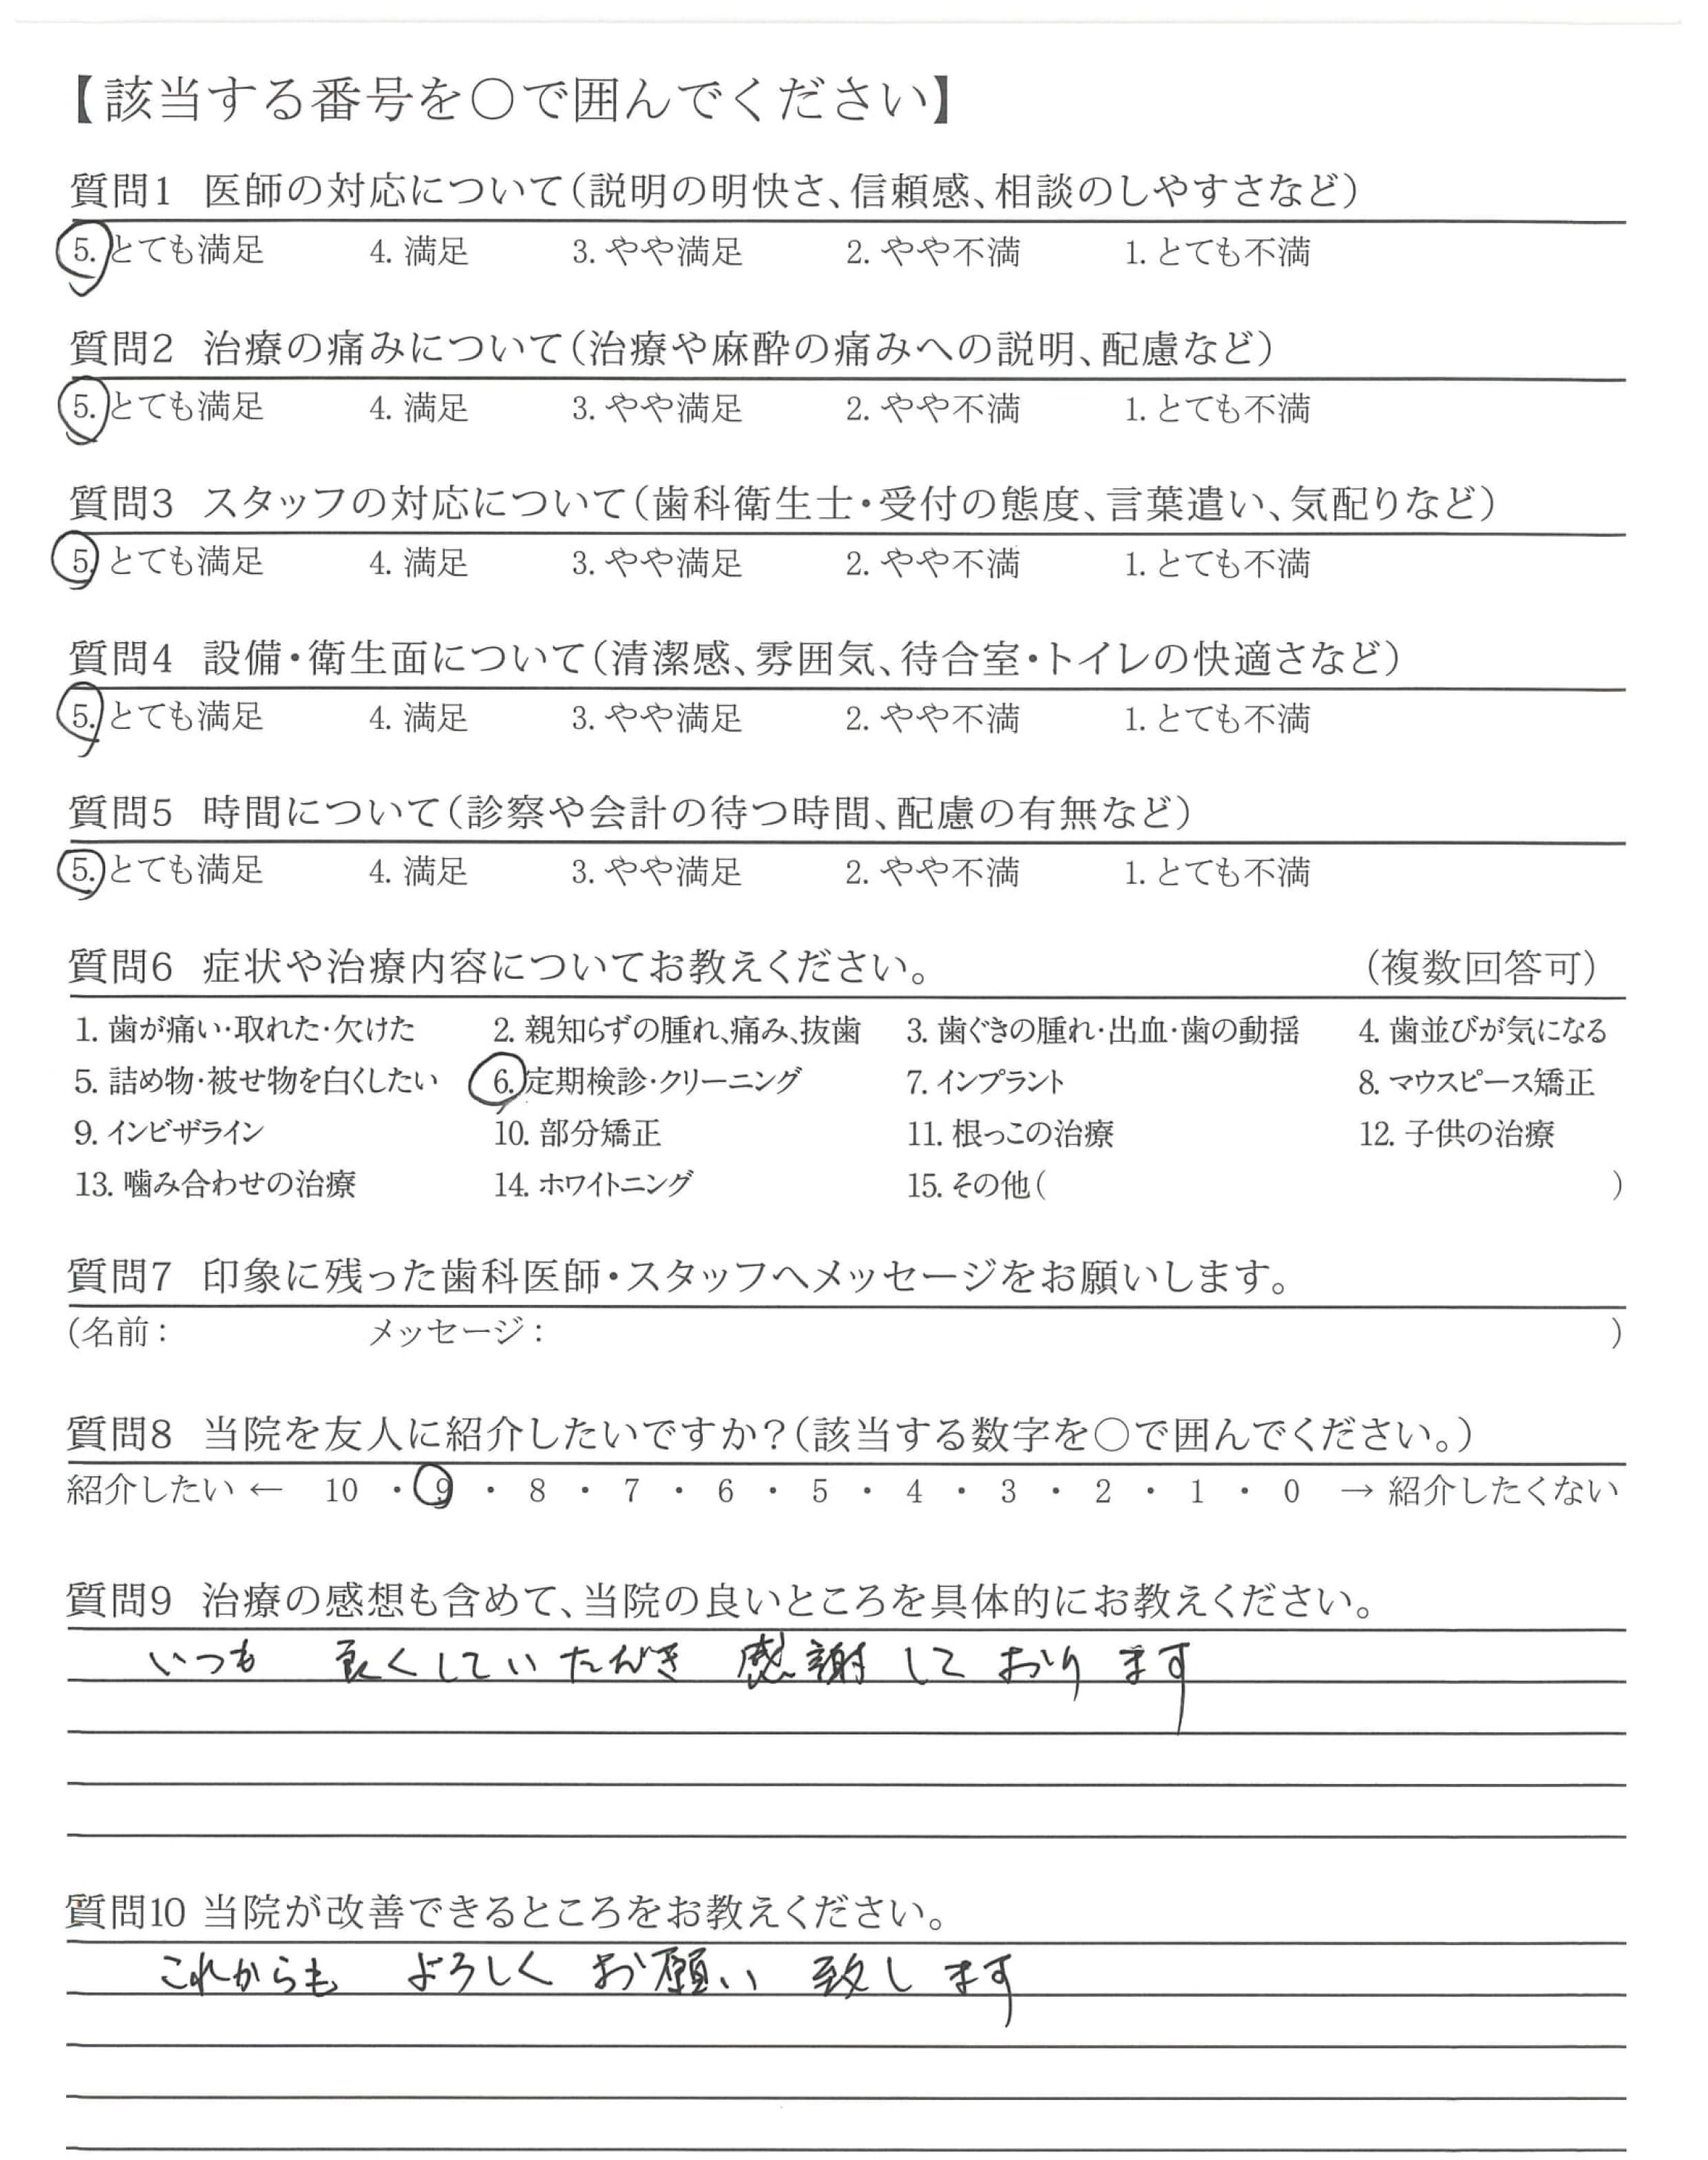 【該当する番号を○で囲んでください】
質問1 医師の対応について(説明の明快さ、信頼感、相談のしやすさなど)
5. とても満足 4. 満足 3. やや満足 2. やや不満 1. とても不満
質問2 治療の痛みについて(治療や麻酔の痛みへの説明、配慮など)
5. とても満足 4. 満足 3. やや満足 2. やや不満 1. とても不満
質問3 スタッフの対応について(歯科衛生士・受付の態度、言葉遣い、気配りなど)
5. とても満足 4. 満足 3. やや満足 2. やや不満 1. とても不満
質問4 設備・衛生面について(清潔感、雰囲気、待合室・トイレの快適さなど)
5. とても満足 4. 満足 3. やや満足 2. やや不満 1. とても不満
質問5 時間について(診察や会計の待つ時間、配慮の有無など)
5. とても満足 4. 満足 3. やや満足 2. やや不満 1. とても不満
質問6 症状や治療内容についてお教えください。 (複数回答可)
1. 歯が痛い・取れた・欠けた 2. 親知らずの腫れ、痛み、抜歯 3. 歯ぐきの腫れ・出血・歯の動揺 4. 歯並びが気になる
5. 詰め物・被せ物を白くしたい 6. 定期検診・クリーニング 7. インプラント 8. マウスピース矯正
9. インビザライン 10. 部分矯正 11. 根っこの治療 12. 子供の治療
13. 噛み合わせの治療 14. ホワイトニング 15. その他( )
質問7 印象に残った歯科医師・スタッフへメッセージをお願いします。
(名前: メッセージ: )
質問8 当院を友人に紹介したいですか?(該当する数字を○で囲んでください。)
紹介したい ← 10 ・ 9 ・ 8 ・ 7 ・ 6 ・ 5 ・ 4 ・ 3 ・ 2 ・ 1 ・ 0 → 紹介したくない
質問9 治療の感想も含めて、当院の良いところを具体的にお教えください。
いつも 良くしていただき 感謝しております
質問10 当院が改善できるところをお教えください。
これからも よろしく お願い 致します